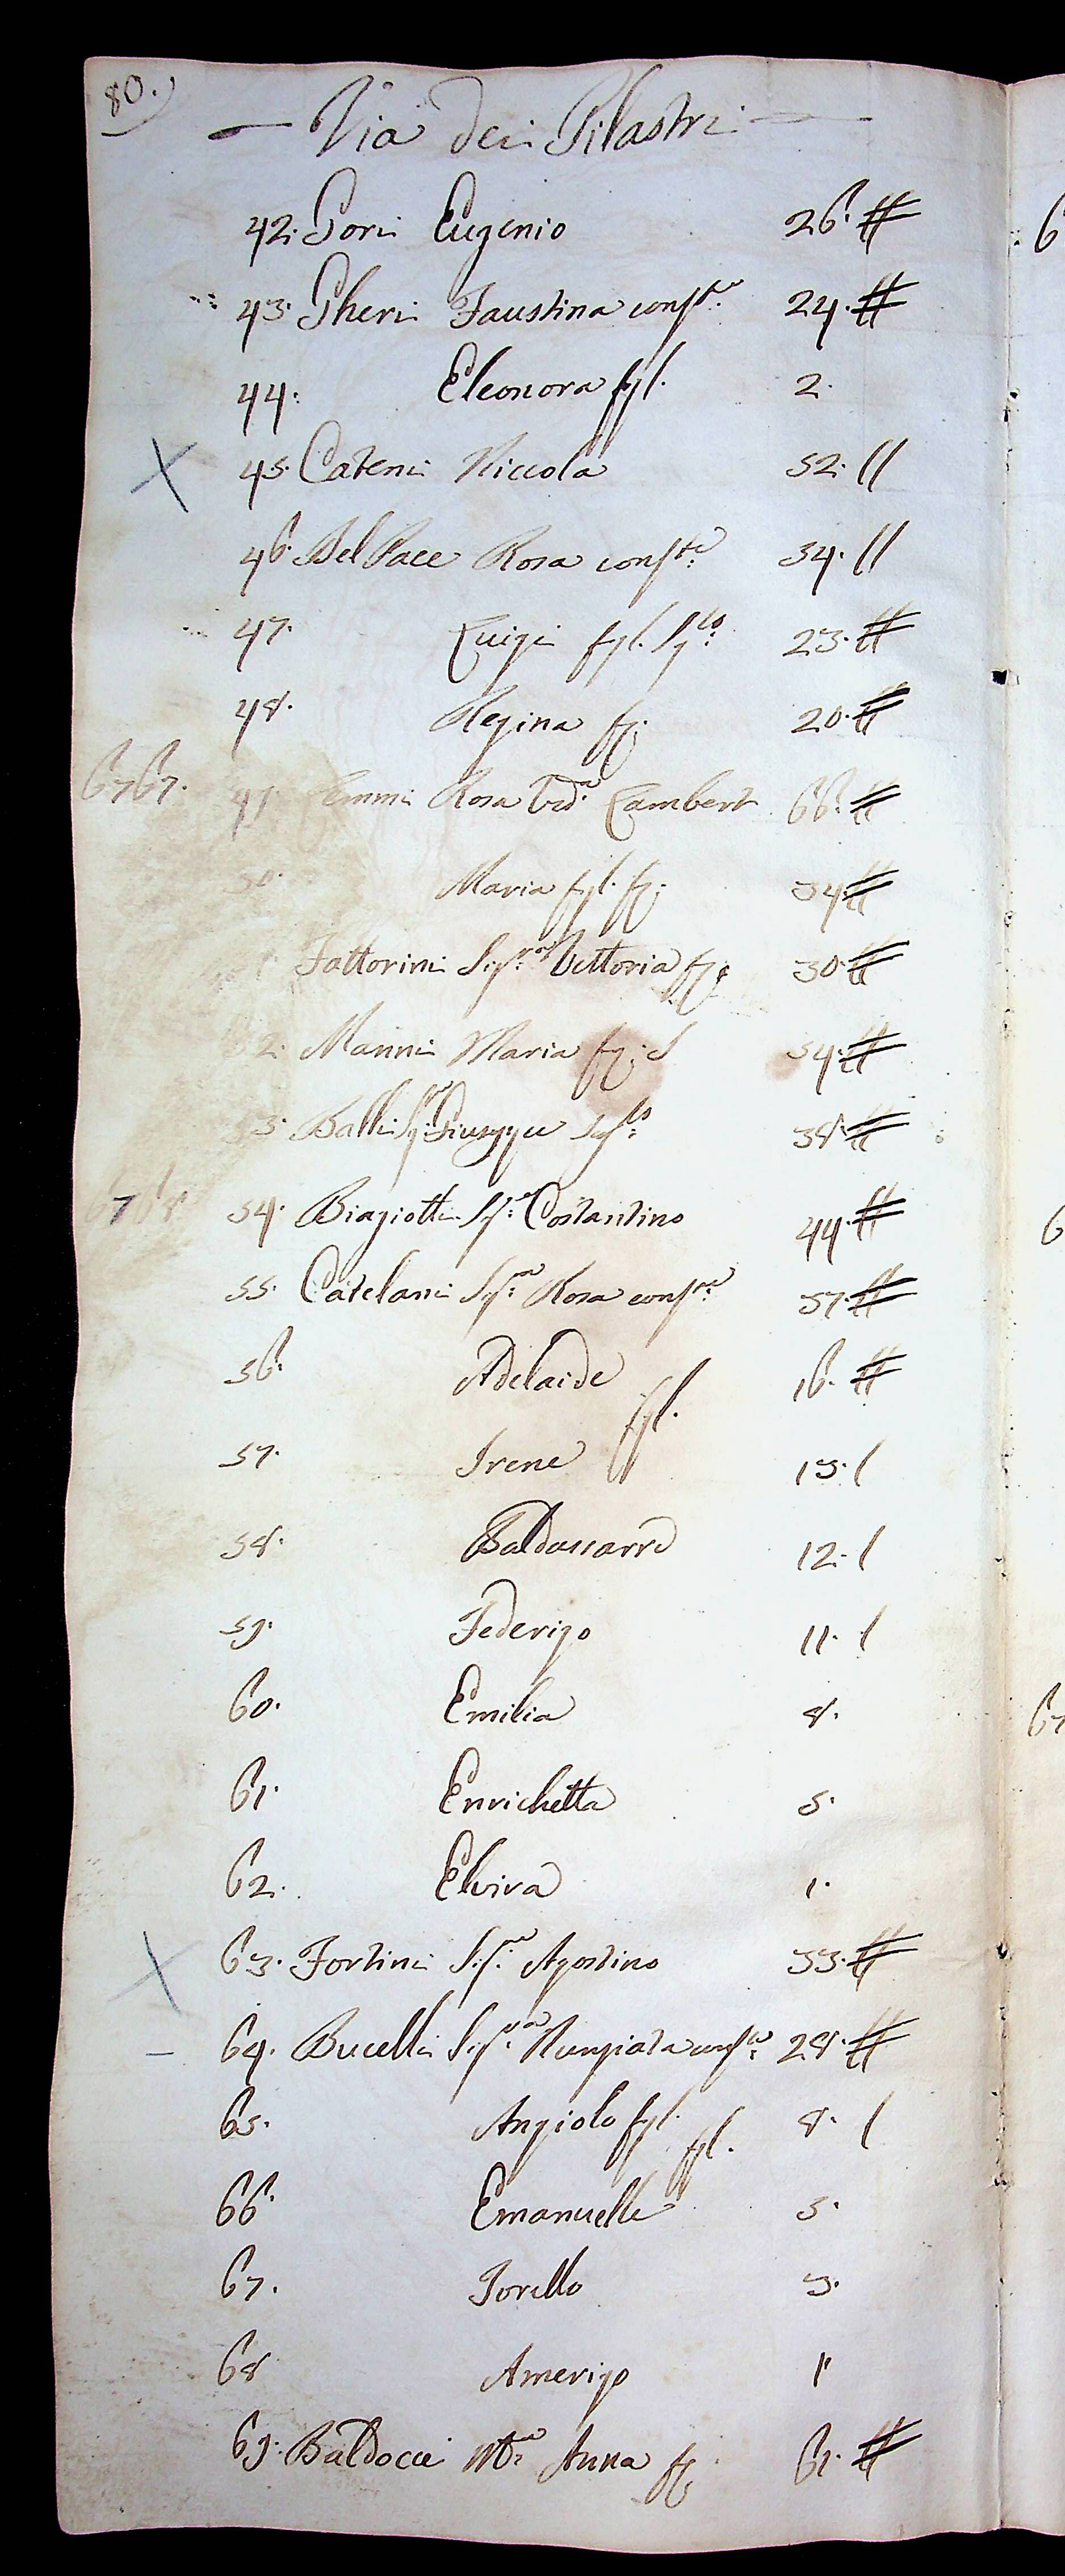 80.
Via dei Pilastri
42. Gori Eugenio 26.
43. Gheri Faustina conste. 24.
44. Eleonora fgl. 2.
X 45. Cateni Niccola 52. //
46. Del Pace Rosa conste. 34. //
47. Luigi fgl. 23.
48. Regina fg. 20.
6767. 49. Lemmi Rosa Vda. Lambert 66.
50. Maria fgl. fg. 34.
Fattorini Sigra. Vettoria fg. 30.
52. Manni Maria fg. S 54.
53. Balli Giuseppe 38.
6768 54. Biagiotti Sigr. Costantino 44.
55. Catelani Sigra. Rosa conste. 37.
56. Adelaide 16.
fgl.
57. Irene 13. /
58. Baldassarre 12. /
59. Federigo 11. /
60. Emilia 8.
61. Enrichetta 5.
62. Elvira 1.
X 63. Fortini Sigr. Agostino 33.
64. Bucelli Sigra. Nunziata conste. 28.
65. Angiolo fgl. 8. /
fgl.
66. Emanuelle 5.
67. Torello 3.
68 Amerigo 1
69. Baldocci Anna fg. 61.
6